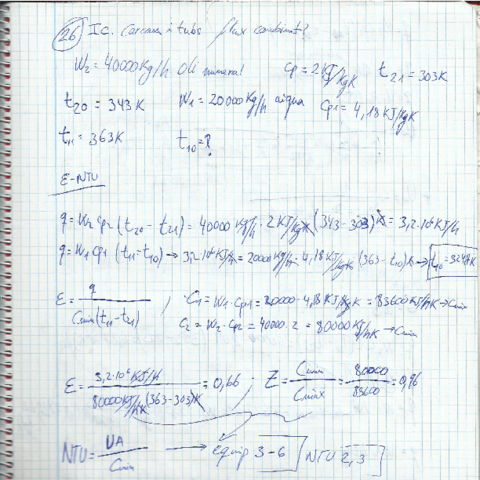 26 I.c. Carcassa i tubs flux combinat?
W2 = 40000 Kg/h Oli mineral Cp = 2 KJ/KgK t21 = 303K
t20 = 343K W1 = 20000 Kg/h aigua Cp1 = 4,18 KJ/KgK
t11 = 363K t10 = ?
ε-NTU
q = W2 Cp2 (t20 - t21) = 40000 Kg/h · 2 KJ/KgK (343-303)K = 3,2·10⁶ KJ/h
q = W1 Cp1 (t11 - t10) → 3,2·10⁶ KJ/h = 20000 Kg/h · 4,18 KJ/KgK (363 - t10)K → t10 = 324,7K
ε = q / Cmin(t11 - t21) ; C1 = W1·Cp1 = 20000 · 4,18 KJ/KgK = 83600 KJ/hK →
C2 = W2·Cp2 = 40000 · 2 = 80000 KJ/hK → Cmin
ε = 3,2·10⁶ KJ/h / 80000 KJ/hK (363-303)K = 0,66 ; Z = Cmin / Cmax = 80000 / 83600 = 0,96
NTU = UA / Cmin → equip 3-6 NTU 2,3